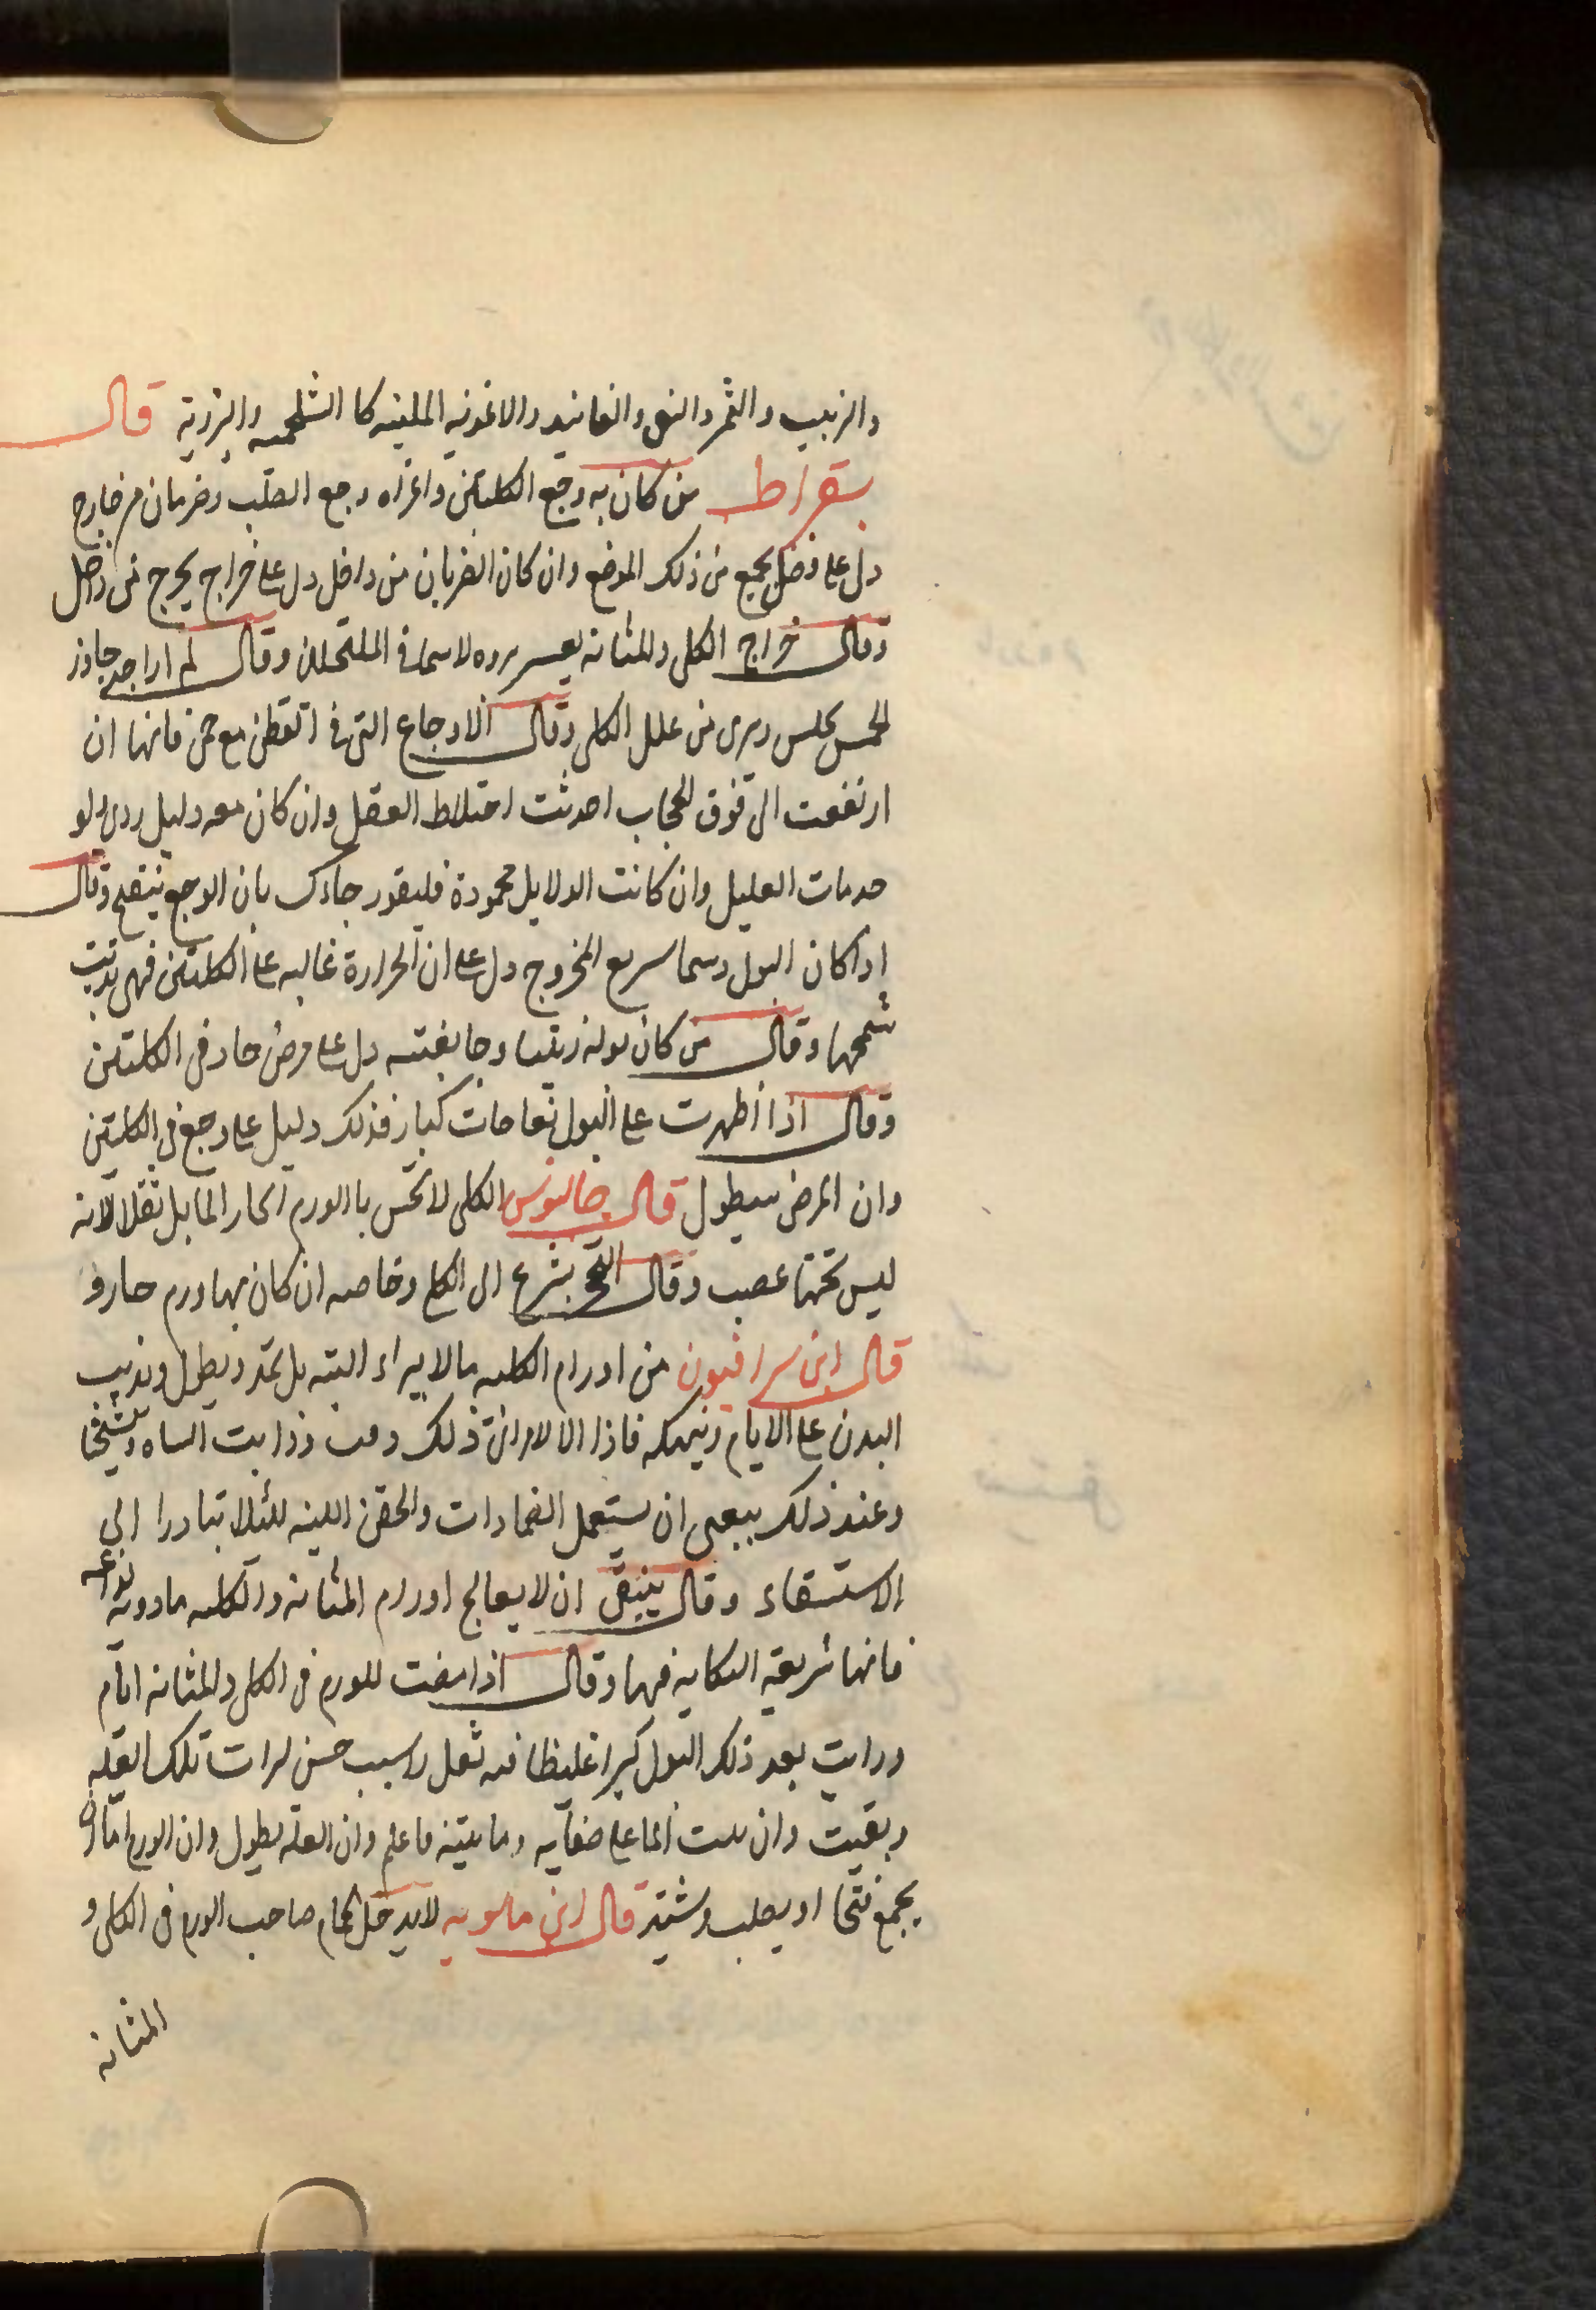 والزبيب والتمر والتين والفانيد والاغذيه الملينه كا الشلجميه والبزرية قال
بقراط من كان به وجع الكليتين واعراه وجع الصلب وضربان من خارج
دل على فضل يجمع من ذلك الموضع وان كان الضربان من داخل دل على خراج يخرج من داخل
وقال خراج الكلى والمثانه يعسر بروه لاسيما في المكتهلين وقال لم ار احد جاوز
الخمسين وبرى من علل الكلى وقال الاوجاع التي في القطن مع حمى فانها ان
ارتفعت الى فوق الحجاب احدثت اختلاط العقل وان كان معه دليل ردى
مات العليل وان كانت الدلايل محمودة فليقو رجاءك بان الوجع ينتقح وقال
اذا كان البول دسما سريع الخروج دل على ان الحرارة غالبه على الكليتين فهى تذيب
شحمها وقال من كان بوله زيتيا وجا بغتة دل على مرض حاد فى الكليتين
وقال اذا اظهرت على البول نفاخات كبار فذلك دليل على وجع في الكليتين
وان المرض سيطول قال جالينوس الكلى لا تحس باالورم الحار المايل ثقلا لانه
ليس تحتها عصب وقال القيح يسرع الى الكلى وخاصه ان كان بها ورم حار و
قال ابن سرافيون من اورام الكليه مالا يبراء البته بل يمتد ويطول ويذيب
البدن على الايام وينهكه فاذا ذلك ذابت
وعند ذلك ينبغى ان يستعمل الضمادات والحقن اللينه للئلا تبادرا الى
الاستسقاء وقال ينبغى ان لا يعالج اورام المثانه والكليه مادونه
فانها سريعة النكايه فيها وقال اذا مضت للورم في الكلى والمثانه ايام
ورايت بعد ذلك البول كثيرا غليظا فيه ثفل راسب حسن تلك العله
وبقيت وان الماء على صفايه ومايته فاعلم وان العله يطول وان الورم اما ان
يجمع فتحا او يصلب ويشتد قال ابن ماسويه لا يدخل الحمام صاحب الورم في الكلى و
المثانه